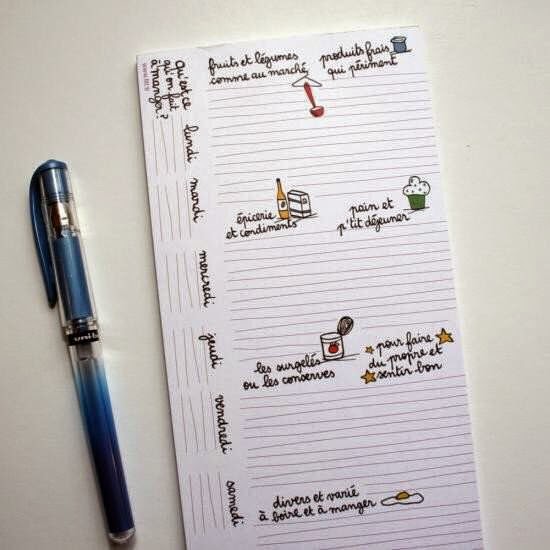 Qu'est ce
qu'on fait
à manger?
lundi
mardi
mercredi
jeudi
vendredi
samedi
fruits et légumes
comme au marché
produits frais
qui périment
épicerie
et condiments
pain et
p'tit déjeuner
les surgelés
ou les conserves
pour faire
du propre et
sentir bon
divers et varié
à boire et à manger
uni